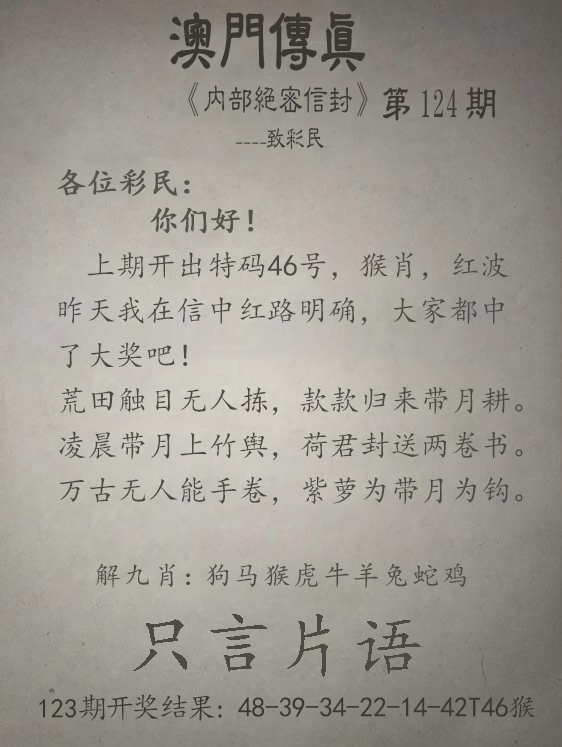 澳門傳眞
《内部絕密信封》第124期
----致彩民
各位彩民：
你们好！
上期开出特码46号，猴肖，红波
昨天我在信中红路明确，大家都中
了大奖吧！
荒田触目无人拣，款款归来带月耕。
凌晨带月上竹舆，荷君封送两卷书。
万古无人能手卷，紫萝为带月为钩。
解九肖：狗马猴虎牛羊兔蛇鸡
只言片语
123期开奖结果：48-39-34-22-14-42T46猴